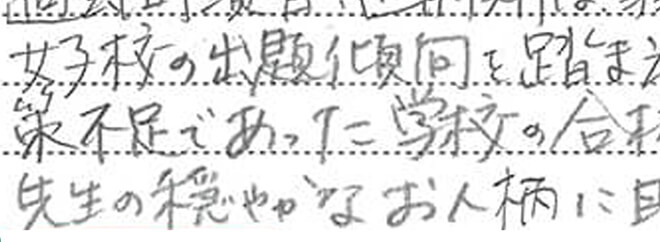 女子校の出題傾向を踏まえ
策不足であった学校の合格
先生の穏やかなお人柄に